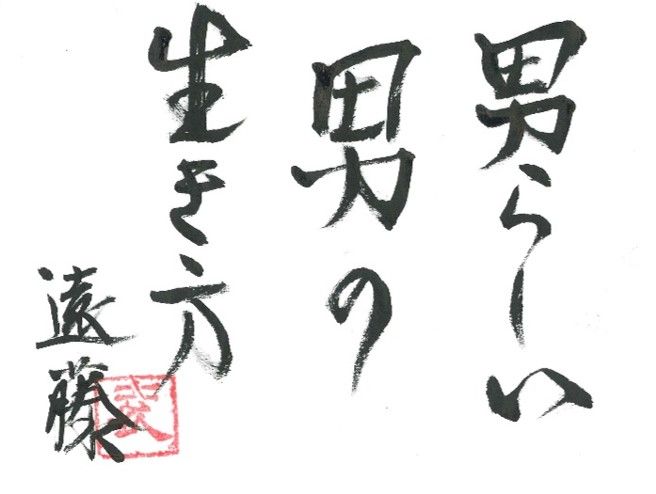 男らしい
男の
生き方
遠藤